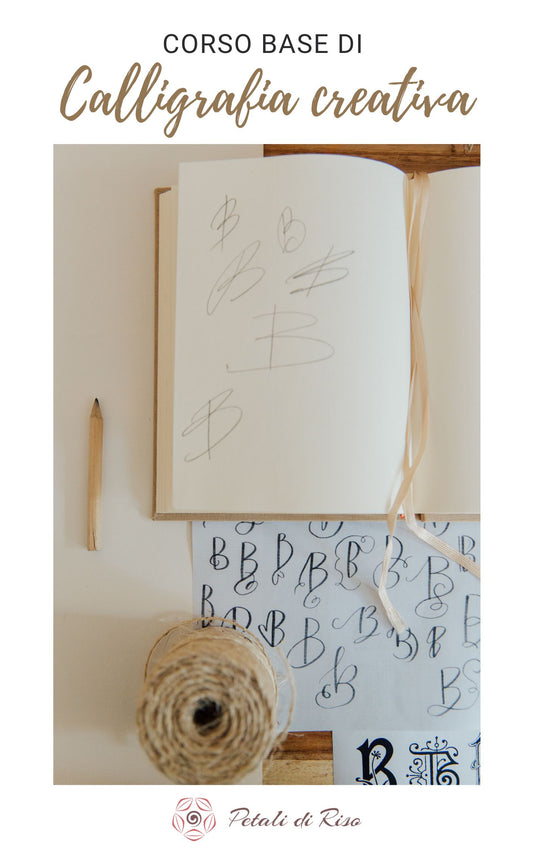 CORSO BASE DI
Calligrafia creativa
B B
B B
B
B
B B B B B B B B
B B B B B B B B
B B
B B
Petali di Riso